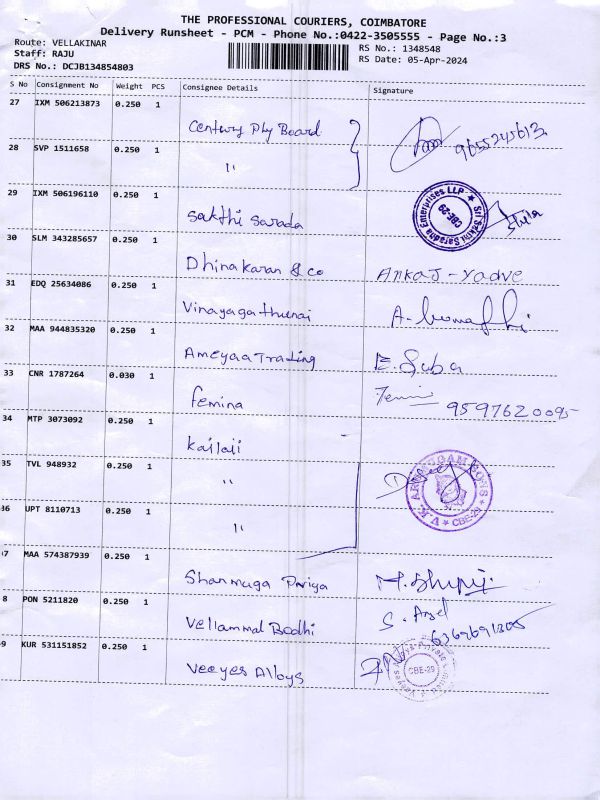 THE PROFESSIONAL COURIERS, COIMBATORE
Delivery Runsheet - PCM - Phone No.:0422-3505555 - Page No.:3
Route: VELLAKINAR
RS No.: 1348548
Staff: RAJU
RS Date: 05-Apr-2024
DRS No.: DCJB134854803
S No Consignment No Weight PCS Consignee Details Signature
27 IXM 506213873 0.250 1
Century Ply Board 9655245612
28 SVP 1511658 0.250 1
"
29 IXM 506196110 0.250 1
Sakthi Sarada
Sri Sakthi Saradha Enterprises LLP
CBE-29
30 SLM 343285657 0.250 1
Dhinakaran & co ANKAJ-YADVE
31 EDQ 25634086 0.250 1
Vinayagathunai
32 MAA 944835320 0.250 1
Ameyaa Trading E. Suba
33 CNR 1787264 0.030 1
Femina 9597620095
34 MTP 3073092 0.250 1
35 TVL 948932 0.250 1
"
CBE-29
36 UPT 8110713 0.250 1
"
37 MAA 574387939 0.250 1
Shanmuga Priya
8 PON 5211820 0.250 1
Vellammal Bodhi
9 KUR 531151852 0.250 1
Veeyes Alloys
CBE-29